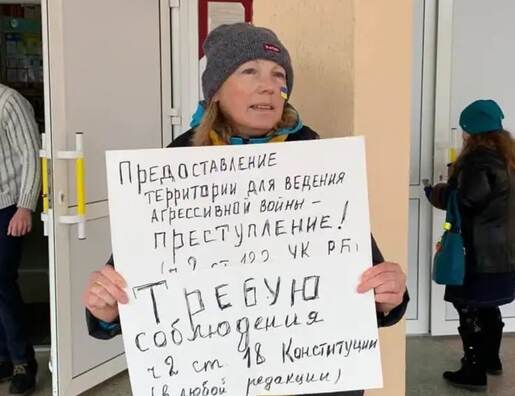 ПРЕДОСТАВЛЕНИЕ
ТЕРРИТОРИИ ДЛЯ ВЕДЕНИЯ
АГРЕССИВНОЙ ВОЙНЫ –
ПРЕСТУПЛЕНИЕ!
УК РБ)
ТРЕБУЮ
соблюдения
ч2 ст. 18 Конституции
(в любой редакции)